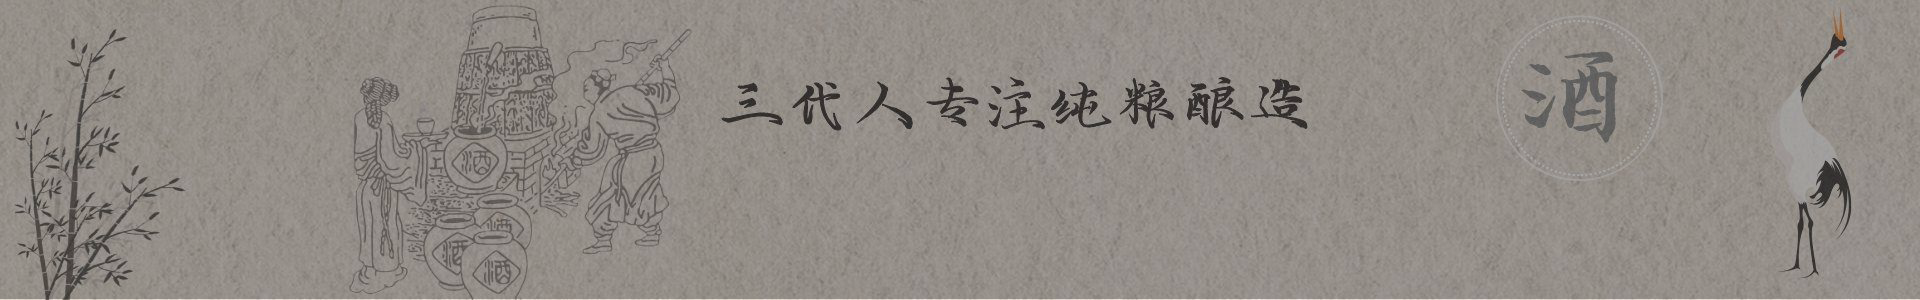 三代人专注纯粮酿造
酒
酒
酒
酒
酒